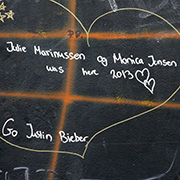 Julie Marinussen og Monica Jensen
was here 2013
Go Justin Bieber